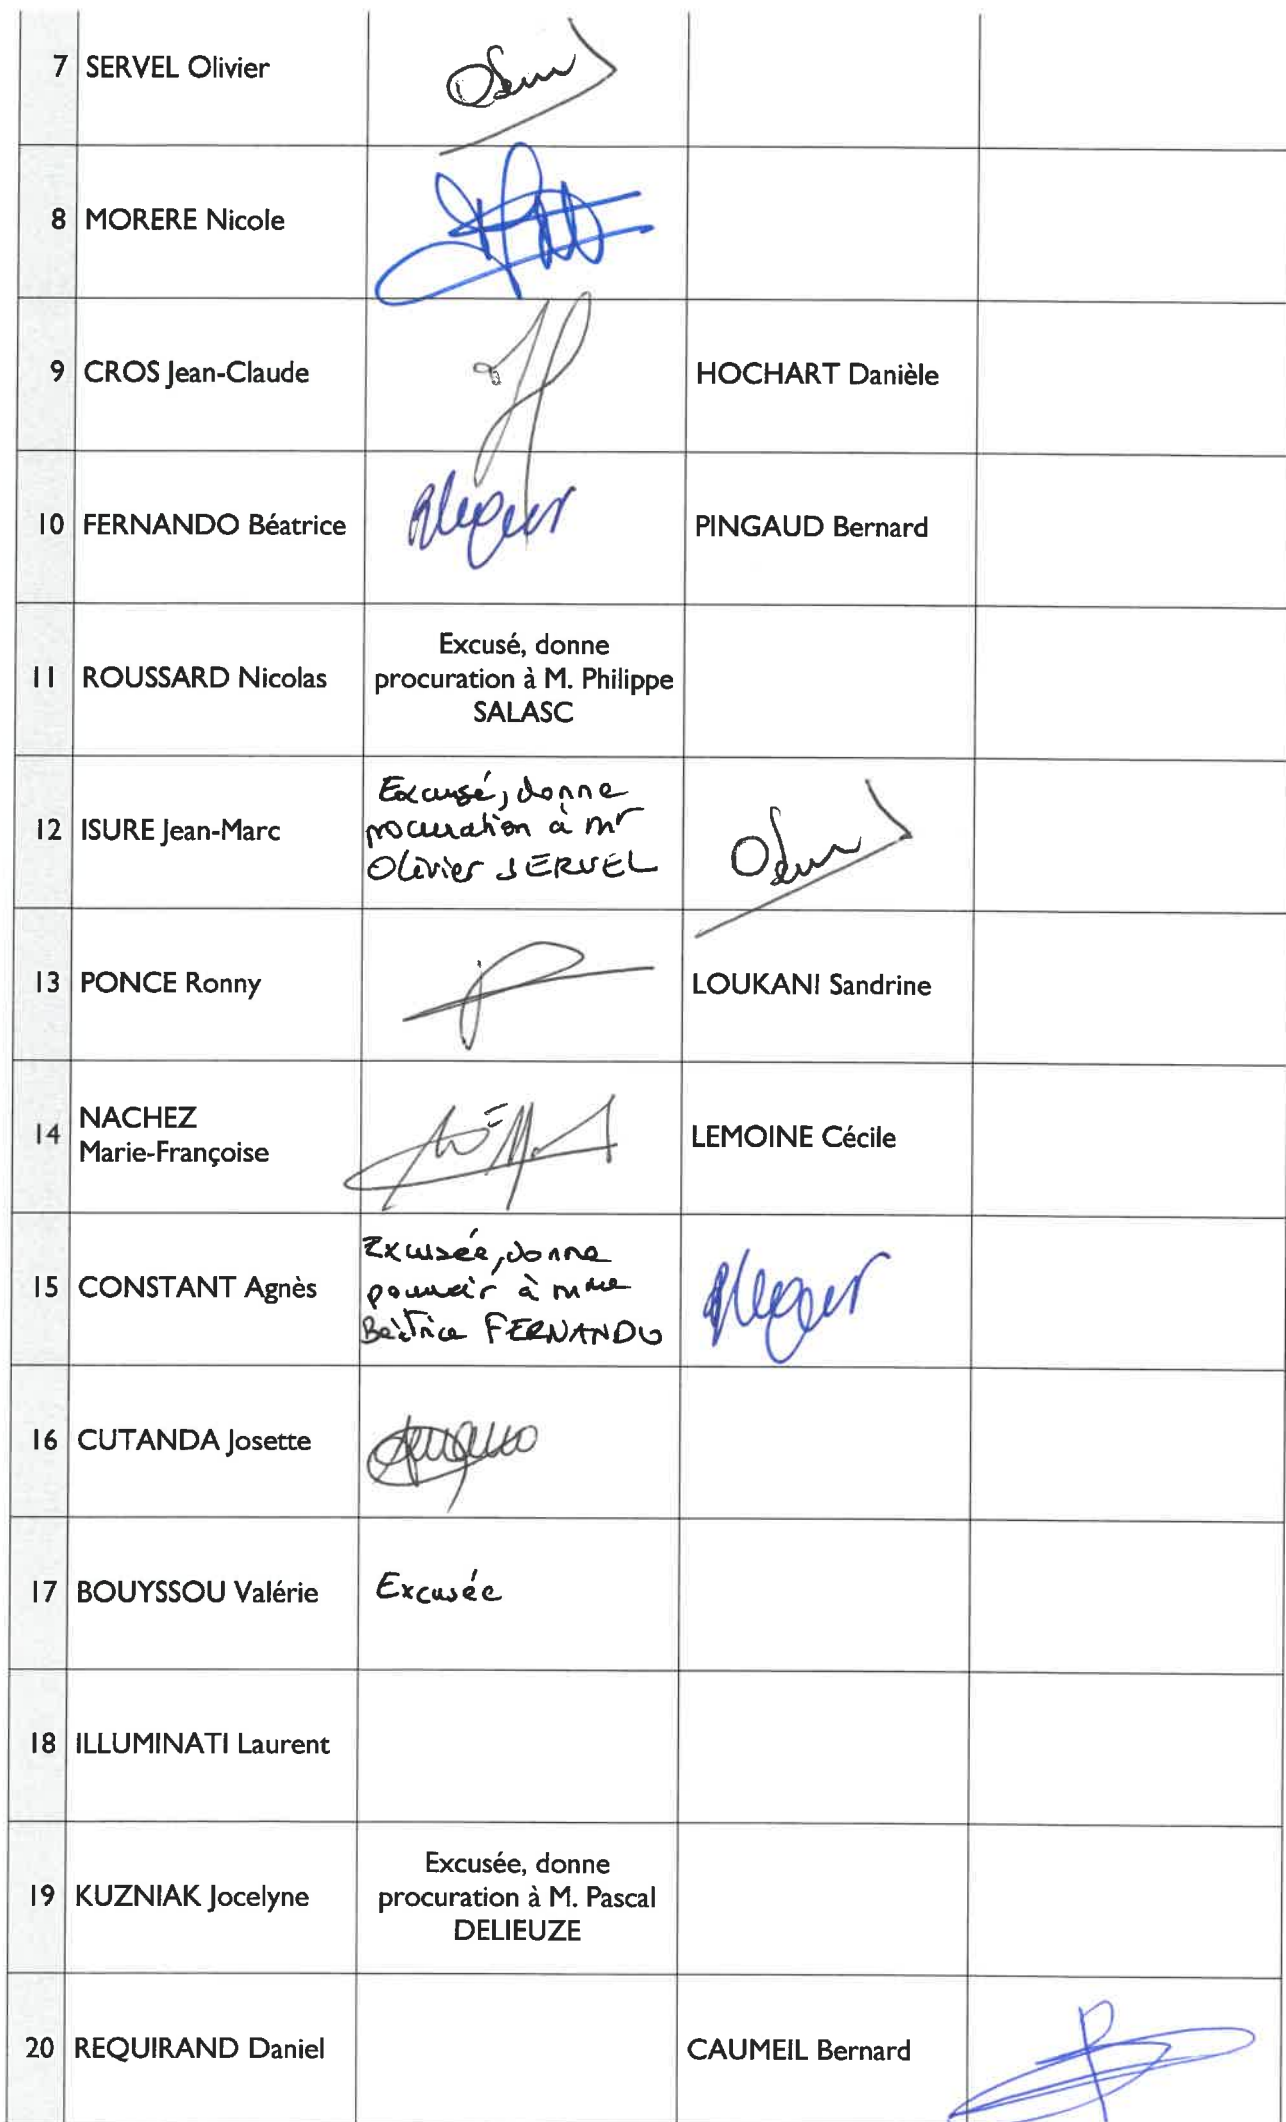 7 SERVEL Olivier
8 MORERE Nicole
9 CROS Jean-Claude HOCHART Danièle
10 FERNANDO Béatrice PINGAUD Bernard
11 ROUSSARD Nicolas
Excusé, donne
procuration à M. Philippe
SALASC
12 ISURE Jean-Marc
Excusé, donne
procuration à Mr
Olivier SERVEL
13 PONCE Ronny LOUKANI Sandrine
14 NACHEZ
Marie-Françoise
LEMOINE Cécile
15 CONSTANT Agnès
Excusée, donne
pouvoir à Mme
Béatrice FERNANDO
16 CUTANDA Josette
17 BOUYSSOU Valérie Excusée
18 ILLUMINATI Laurent
19 KUZNIAK Jocelyne
Excusée, donne
procuration à M. Pascal
DELIEUZE
20 REQUIRAND Daniel CAUMEIL Bernard